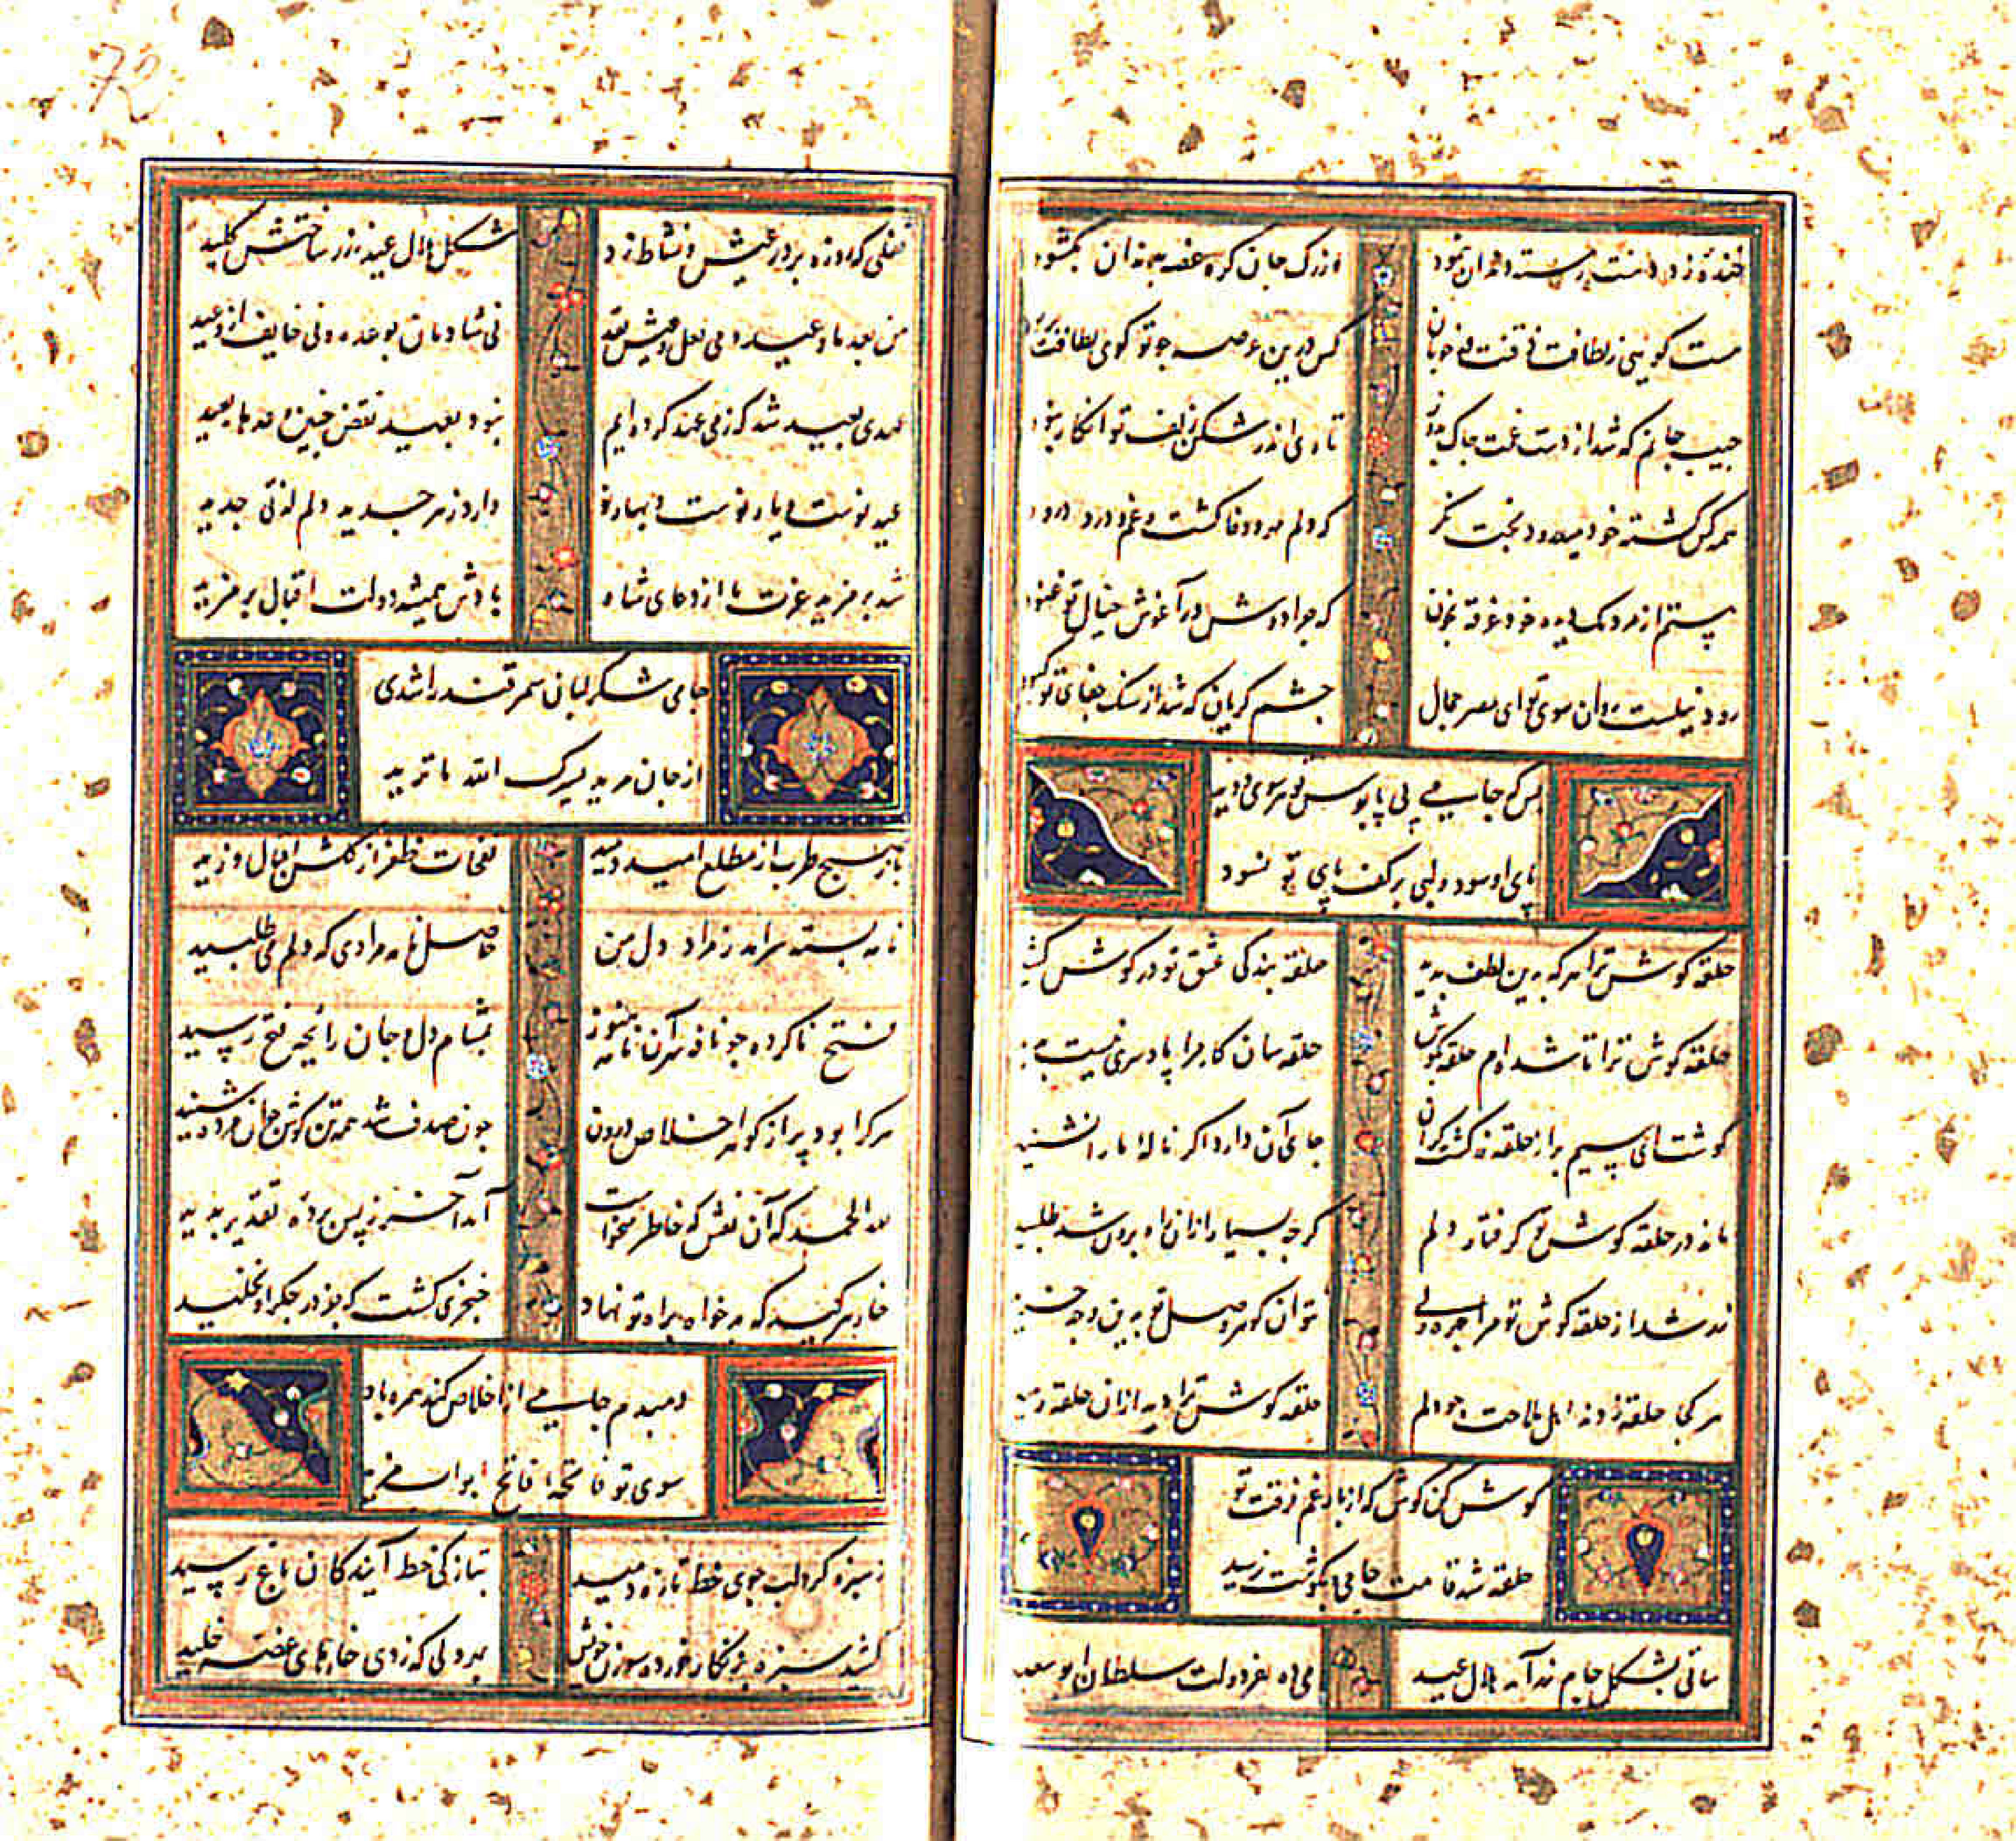 خنده زد دهنت رسته دندان نمود
از رک جان کره غصه بدندان بکشود
جیب جانم که شد از دست غمت چاک
تاری از شکن زلف تو انکار نبود
همه کس کشته خود میدرود بخت نکر
که دلم مهر و وفا کشت و غم و درد درود
چشم از مردمک دیده خود غرقه بخون
که چرا دوش در آغوش خیال تو غنود
رود نیلست روان سوی تو ای مصر جمال
چشم کریان که شد از سنک جفای تو کبود
بس که جامی پی پابوس تو هر سوی دوید
پای او سود ولبی بر کف پای تو نسود
حلقه کوش ترا هر که بدین لطف بدید
حلقه بندکی عشق تو در کوش کشید
حلقه کوش ترا تا شده ام حلقه بکوش
حلقه سان کار مرا پا و سری نیست پدید
کوشت ای سیم بر از حلقه زر کشت کران
جای آن دارد اکر ناله ما را نشنید
مانده در حلقه کوش تو کرفتار دلم
کرچه بسیار از ان راه برون شد طلبید
زر شد از حلقه کوش تو مرا چهره ولی
نتوان کوهر وصل تو بدین وجه خرید
هر کجا حلقه زدند اهل ملاحت چو دلم
حلقه کوش ترا دید از ان حلقه رمید
کوش کن کوش که از بار غم فرقت تو
حلقه شد قامت جامی بکوشت نرسید
ساقی بشکل جام زر آمد هلال عید
می ده بفر دولت سلطان ابو سعید
قفلی که روزه بر در عیش و نشاط زد
شکل هلال عید ز زر ساختش کلید
من بعد ما و عید و می لعل و عیش نقد
نی شادمان بوعده و نی خایف از وعید
عهدی بعید شد که ز می عهد کرده ایم
نبود بعید نقض چنین عهدهای بعید
عید نوست و یار نوست و بهار نو
دارد ز هر جدید دلم لذتی جدید
شد بر مزید عزت ما از دعای شاه
بادش همیشه دولت اقبال بر مزید
جامی شکر لبان سمرقند را شدی
از جان مرید یسرک الله ما ترید
باز صبح طرب از مطلع امید دمید
نفحات ظفر از کلشن اقبال وزید
نامه بسته سر آمد ز مراد دل من
حاصل نامه مرادی که دلم می طلبید
فتح ناکرده چو نافه سر آن نامه هنوز
بمشام دل و جان رایحه فتح رسید
هر کرا بود پر از کوهر اخلاص درون
چون صدف شد همه تن کوش چو آن مژده شنید
لله الحمد که آن نقش که خاطر میخواست
آمد آخر ز پس پرده تقدیر پدید
خار هر کید که بدخواه براه تو نهاد
خنجری کشت که جز در جکر او نخلید
دمبدم جامی از اخلاص کند همره باد
سوی تو فاتحه فاتح ابواب مزید
سبزه کرد لب جوی خط تازه دمید
بتازکی خط آیندکان باغ رسید
کشید سبزه زنکار خورده سوزن خویش
بهر دلی که ز دی خارهای غصه خلید